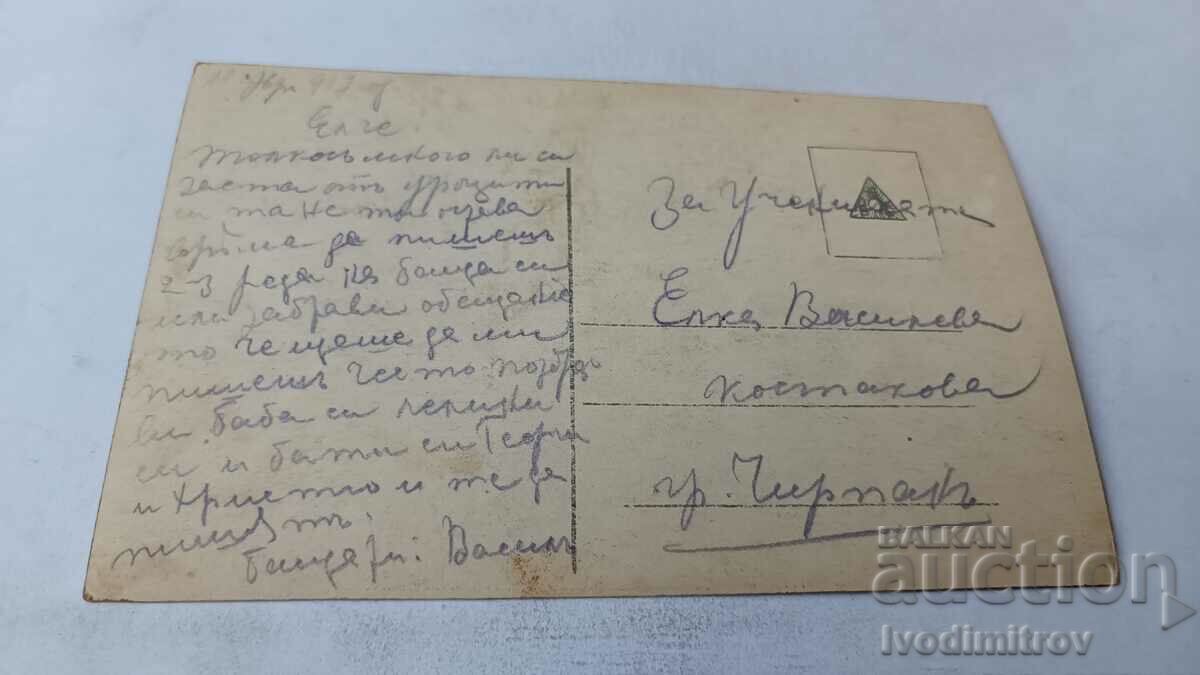 Елче
толкосъ много ли си
заета отъ уроцити
си та не ти идва
да пишешъ
2-3 реда на баща си
или забрави обещание
то че щеше да ми
пишешъ често поздра
ви баба си лелички
си и бати си Георги
и Христо и те да
пишатъ.
баща ти: Василъ
За Ученичката
Елка Василева
Костакова
гр. Чирпанъ
BALKAN
auction
Ivodimitrov